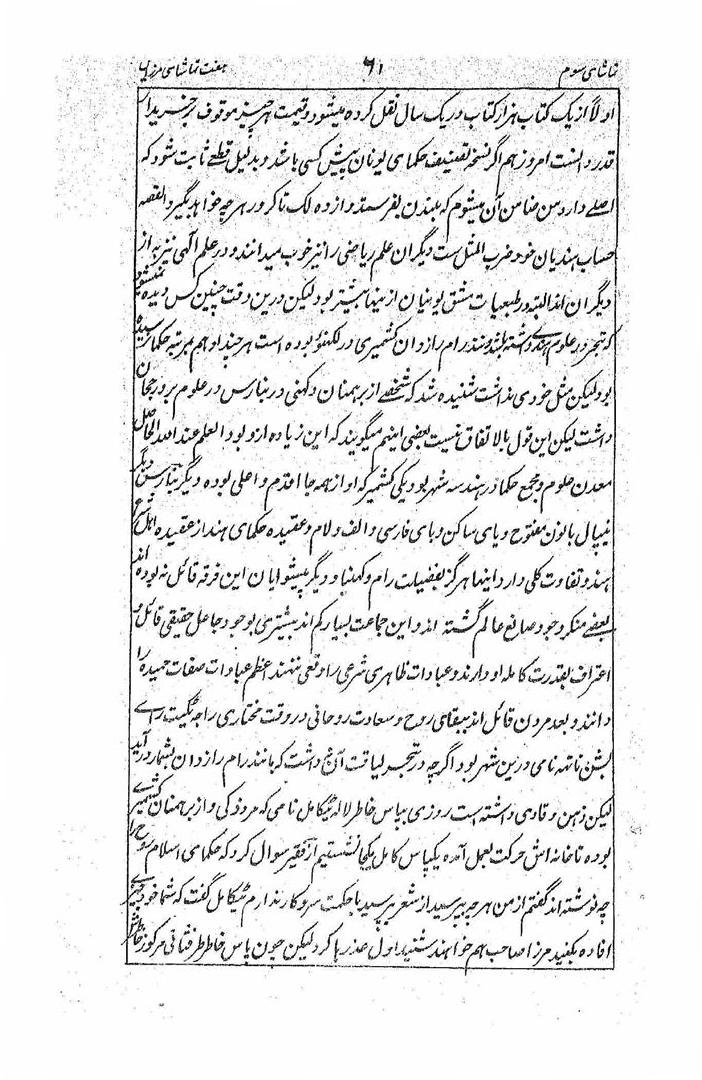 تماشای سوم ۶۱ هفت تماشای مرزا
اولاً از یک کتاب هزار کتاب در یک سال نقل کرده میشود و قیمت هر چیز موقوف بر خریدار
قدردانست امروز هم اگر نسخه تصنیف حکمای یونان پیش کسی باشد و بدلیل قطعی ثابت شود که
اصلی دارد من ضامن آن میشوم که بلندن بفرستد و از ده لک تا کرور هر چه خواهد بگیرد القصه
حساب هندیان خود ضرب المثل ست دیگران علم ریاضی را نیز خوب میدانند و در علم الهی نیز به از
دیگران اند البته در طبعیات مشق یونیان از ینها بیشتر بود لیکن درین وقت چنین کس دیده نمیشود
که تبحر در علوم هندی داشته باشد پندت رام رازدان کشمیری در لکهنؤ بوده است هر چند او هم بمرتبه حکما نرسیده
بود لیکن مثل خودی نداشت شنیده شد که شخصی از برهمنان دکهنی در بنارس در علوم برو رجحان
داشت لیکن این قول بالاتفاق نیست بعضی اینهم میگویند که این زیاده ازو بود العلم عند الله الحاصل
معدن علوم و مجمع حکما در هند سه شهر بود یکی کشمیر که او از همه جا اقدم و اعلی بوده دیگر بنارس دیگر
نیپال بانون مفتوح و یای ساکن و بای فارسی و الف و لام و عقیده حکمای هند از عقیده اهل شرع
هنود تفاوت کلی دارد اینها هرگز بفضیلت رام و کنهیا و دیگر پیشوایان این فرقه قائل نه بوده اند
بعضی منکر وجود صانع عالم گشته اند و این جماعت بسیار کم اند بیشتری بوجود جاعل حقیقی قائل و
اعتراف بقدرت کامله او دارند و عبادات ظاهری شرعی را وقعی ننهند اعظم عبادات صفات حمیده را
دانند و بعد مردن قائل اند ببقای روح و سعادت روحانی در وقت مختاری راجه ٹکیت رای
بشن ناتهه نامی درین شهر بود اگرچه در تبحر لیاقت آن نداشت که مانند رام رازدان بشمار در آید
لیکن ذهن وقادی داشته است روزی بپاس خاطر لاله ٹیکامل نامی که مرد ذکی و از برهمنان کشمیری
بوده تا خانه اش حرکت بعمل آمده یکپاس کامل یکجا نشستیم از فقیر سوال کرد که حکمای اسلام روح را
چه نوشته اند گفتم از من هر چه بپرسید از شعر بپرسید با حکمت سروکار ندارم ٹیکامل گفت که شما خود چیزی
افاده بکنید مرزا صاحب هم خواهند شنید اول عذرها کرد لیکن چون پاس خاطر طرفثانی مرکوز خاطرش